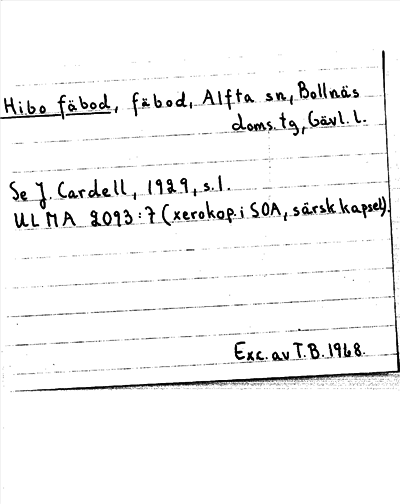 Hibo fäbod, fäbod, Alfta sn, Bollnäs
doms.tg, Gävl. l.
Se J. Cardell, 1929, s. 1.
ULMA 2093:7 (xerokop. i SOA, särsk kapsel).
Exc. av T.B. 1968.